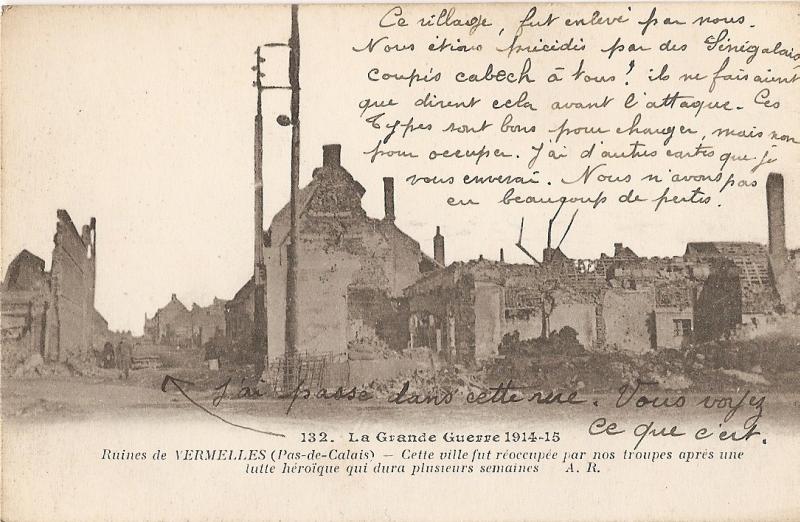 Ce village, fut enlevé par nous.
Nous étions précédés par des Sénégalais
coupés cabech à tous! ils ne faisaient
que dirent cela avant l'attaque. Ces
Types sont bons pour charger, mais non
pour occuper. J'ai d'autres cartes que je
vous enverai. Nous n'avons pas
eu beaucoup de pertes.
J'ai passé dans cette rue. Vous voyez
ce que c'ert.
132. La Grande Guerre 1914-15
Ruines de VERMELLES (Pas-de-Calais) — Cette ville fut réoccupée par nos troupes après une
lutte héroïque qui dura plusieurs semaines A. R.